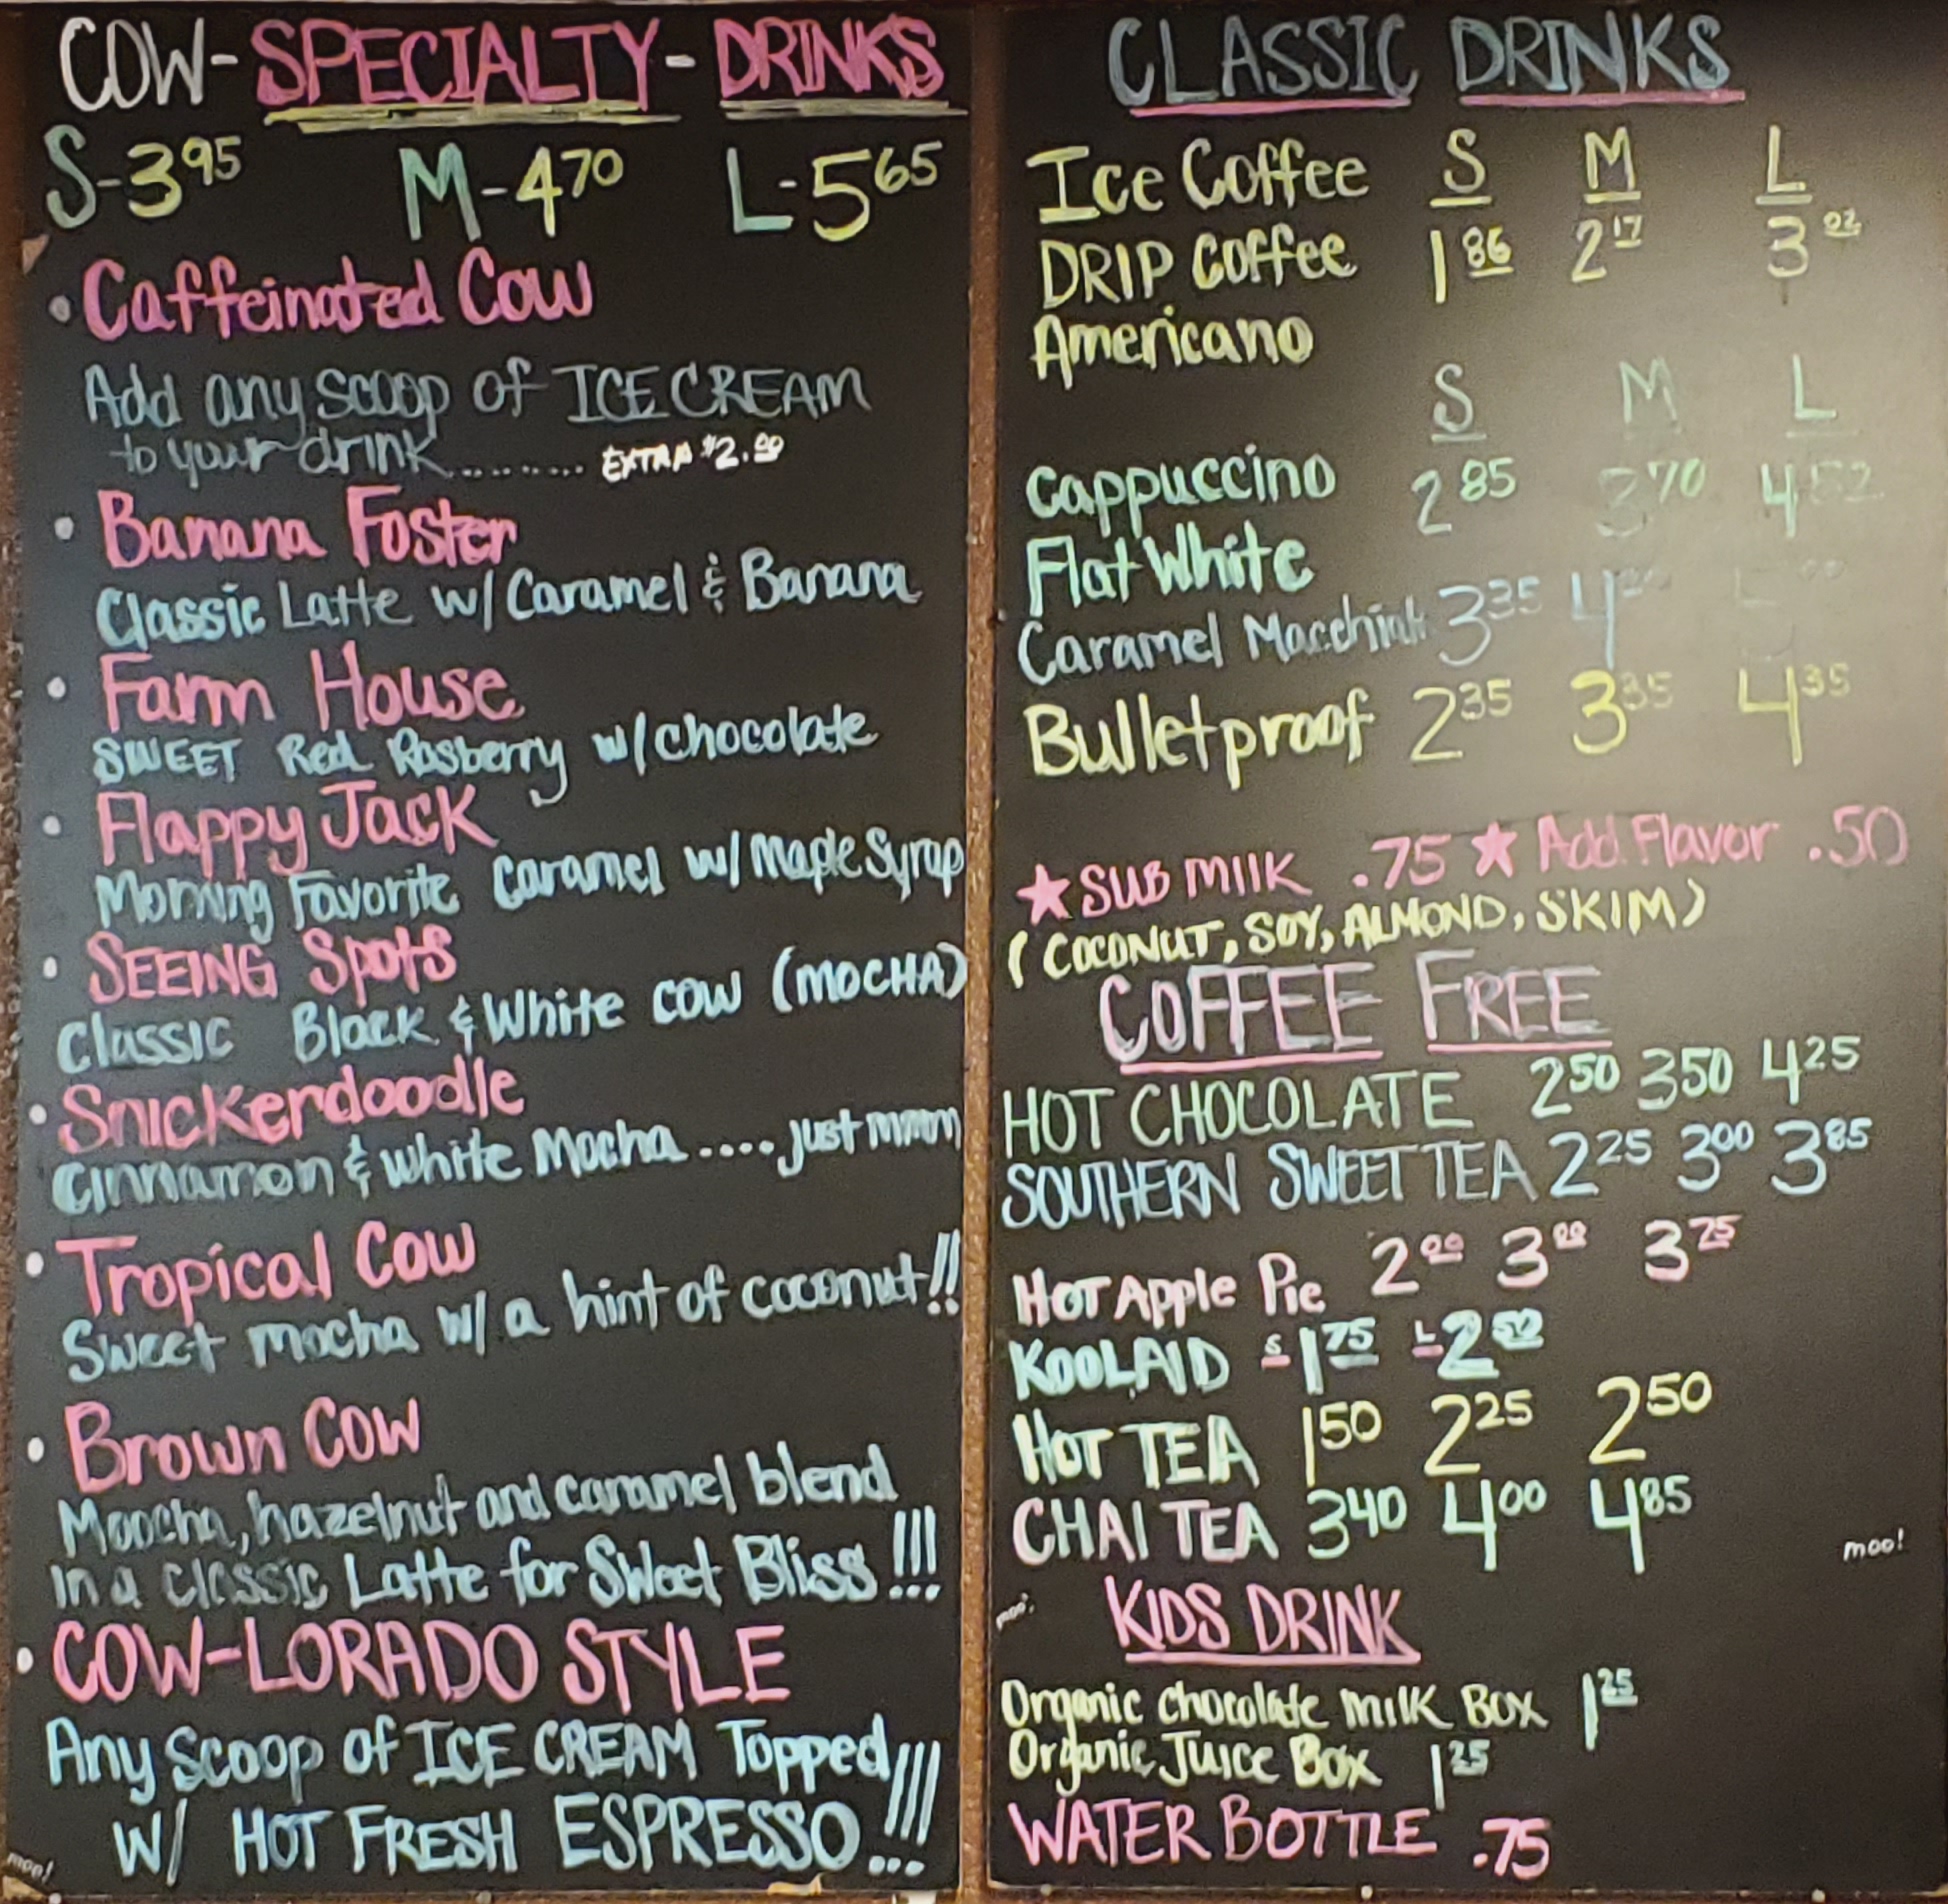 COW-SPECIALTY-DRINKS
S-3.95 M-4.70 L-5.65
• Caffeinated Cow
Add any scoop of ICE CREAM
to your drink.......... EXTRA $2.00
• Banana Foster
Classic Latte w/ Caramel & Banana
• Farm House
SWEET Red Rasberry w/chocolate
• Flappy Jack
Morning Favorite Caramel w/ Maple Syrup
• SEEING Spots
Classic Black & White COW (MOCHA)
• Snickerdoodle
Cinnamon & White Mocha .... just mmm
• Tropical Cow
Sweet mocha w/ a hint of coconut!!
• Brown Cow
Moocha, hazelnut and caramel blend
in a classic Latte for Sweet Bliss!!!
• COW-LORADO STYLE
Any scoop of ICE CREAM Topped
W/ HOT FRESH ESPRESSO!!!
moo!
CLASSIC DRINKS
Ice Coffee S M L
DRIP Coffee 1 86 2 17 3 02
Americano
S M L
Cappuccino 2 85 3 70 4 52
Flat White
Caramel Macchiato 3 35 4
Bulletproof 2 35 3 35 4 35
★ SUB MILK .75 ★ Add Flavor .50
(COCONUT, SOY, ALMOND, SKIM)
COFFEE FREE
HOT CHOCOLATE 2 50 3 50 4 25
SOUTHERN SWEET TEA 2 25 3 00 3 85
HOT Apple Pie 2 00 3 00 3 75
KOOLAID S 1 75 L 2 50
HOT TEA 1 50 2 25 2 50
CHAI TEA 3 40 4 00 4 85
moo!
moo!
KIDS DRINK
Organic chocolate milk Box 1 25
Organic Juice Box 1 25
WATER BOTTLE .75